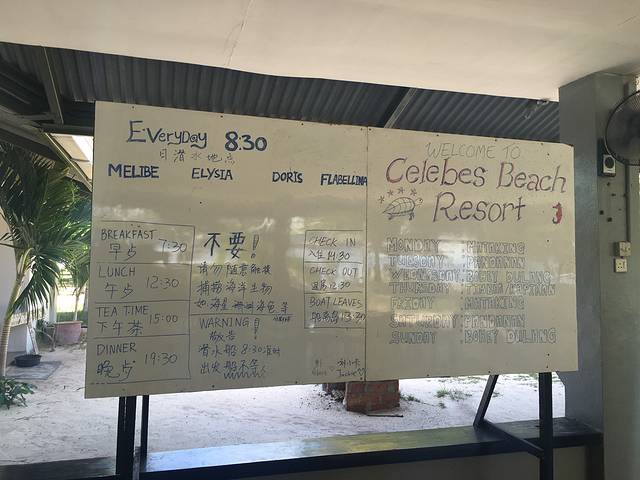 EVERYDAY 8:30
日潜水地点
MELIBE ELYSIA DORIS FLABELLINA
BREAKFAST 7:30
早歺
LUNCH 12:30
午歺
TEA TIME 15:00
下午茶
DINNER 19:30
晚歺
不要!
请勿随意触摸
捕捞海洋生物
如海星 珊瑚 海龟 等
WARNING!
敬告
潜水船 8:30准时
出发 船不等!
CHECK IN
入住 14:30
CHECK OUT
退房 12:30
BOAT LEAVES
13:30
WELCOME TO
Celebes Beach
Resort
MONDAY : MATAKING
TUESDAY : PANDANAN
WEDNESDAY : BOHEY DULANG
THURSDAY :
FRIDAY : MATAKING
SATURDAY : PANDANAN
SUNDAY : BOHEY DULANG